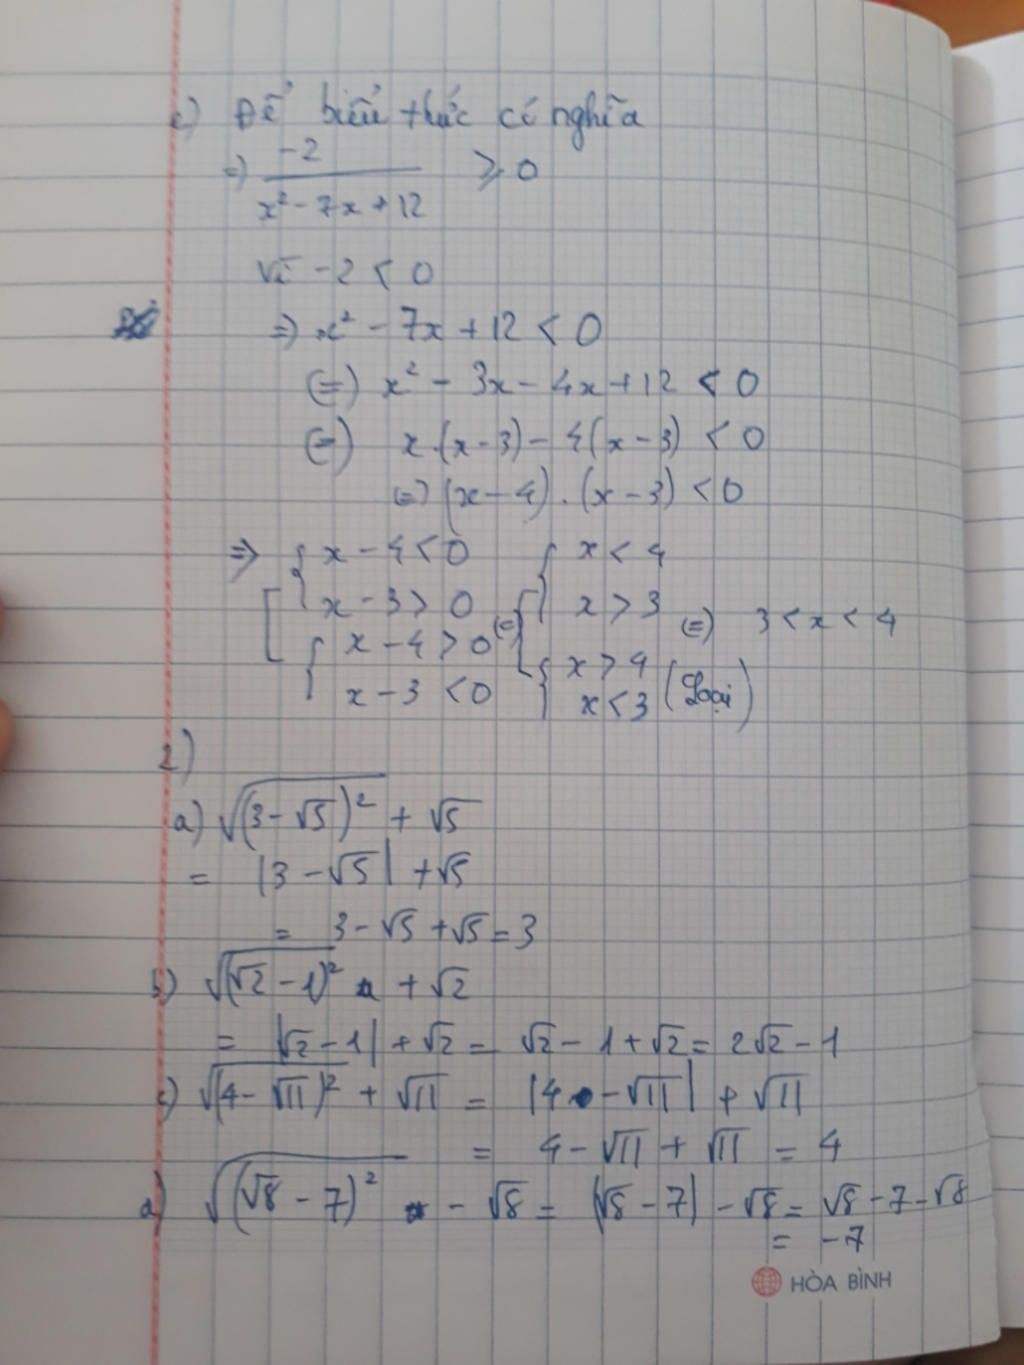 c) Để biểu thức có nghĩa
=) -2 / x² - 7x + 12 ⩾ 0
Vì -2 < 0
=) x² - 7x + 12 < 0
(=) x² - 3x - 4x + 12 < 0
(=) x.(x - 3) - 4(x - 3) < 0
(=) (x - 4).(x - 3) < 0
=> [ { x - 4 < 0 [ { x < 4
x - 3 > 0 x > 3 (=) 3 < x < 4
{ x - 4 > 0 (=) { x > 4
x - 3 < 0 x < 3 (Loại)
2)
a) √(3 - √5)² + √5
= |3 - √5| + √5
= 3 - √5 + √5 = 3
b) √(√2 - 1)² + √2
= |√2 - 1| + √2 = √2 - 1 + √2 = 2√2 - 1
c) √(4 - √11)² + √11 = |4 - √11| + √11
= 4 - √11 + √11 = 4
d) √(√8 - 7)² - √8 = |√8 - 7| - √8 = √8 - 7 - √8
= -7
HÒA BÌNH